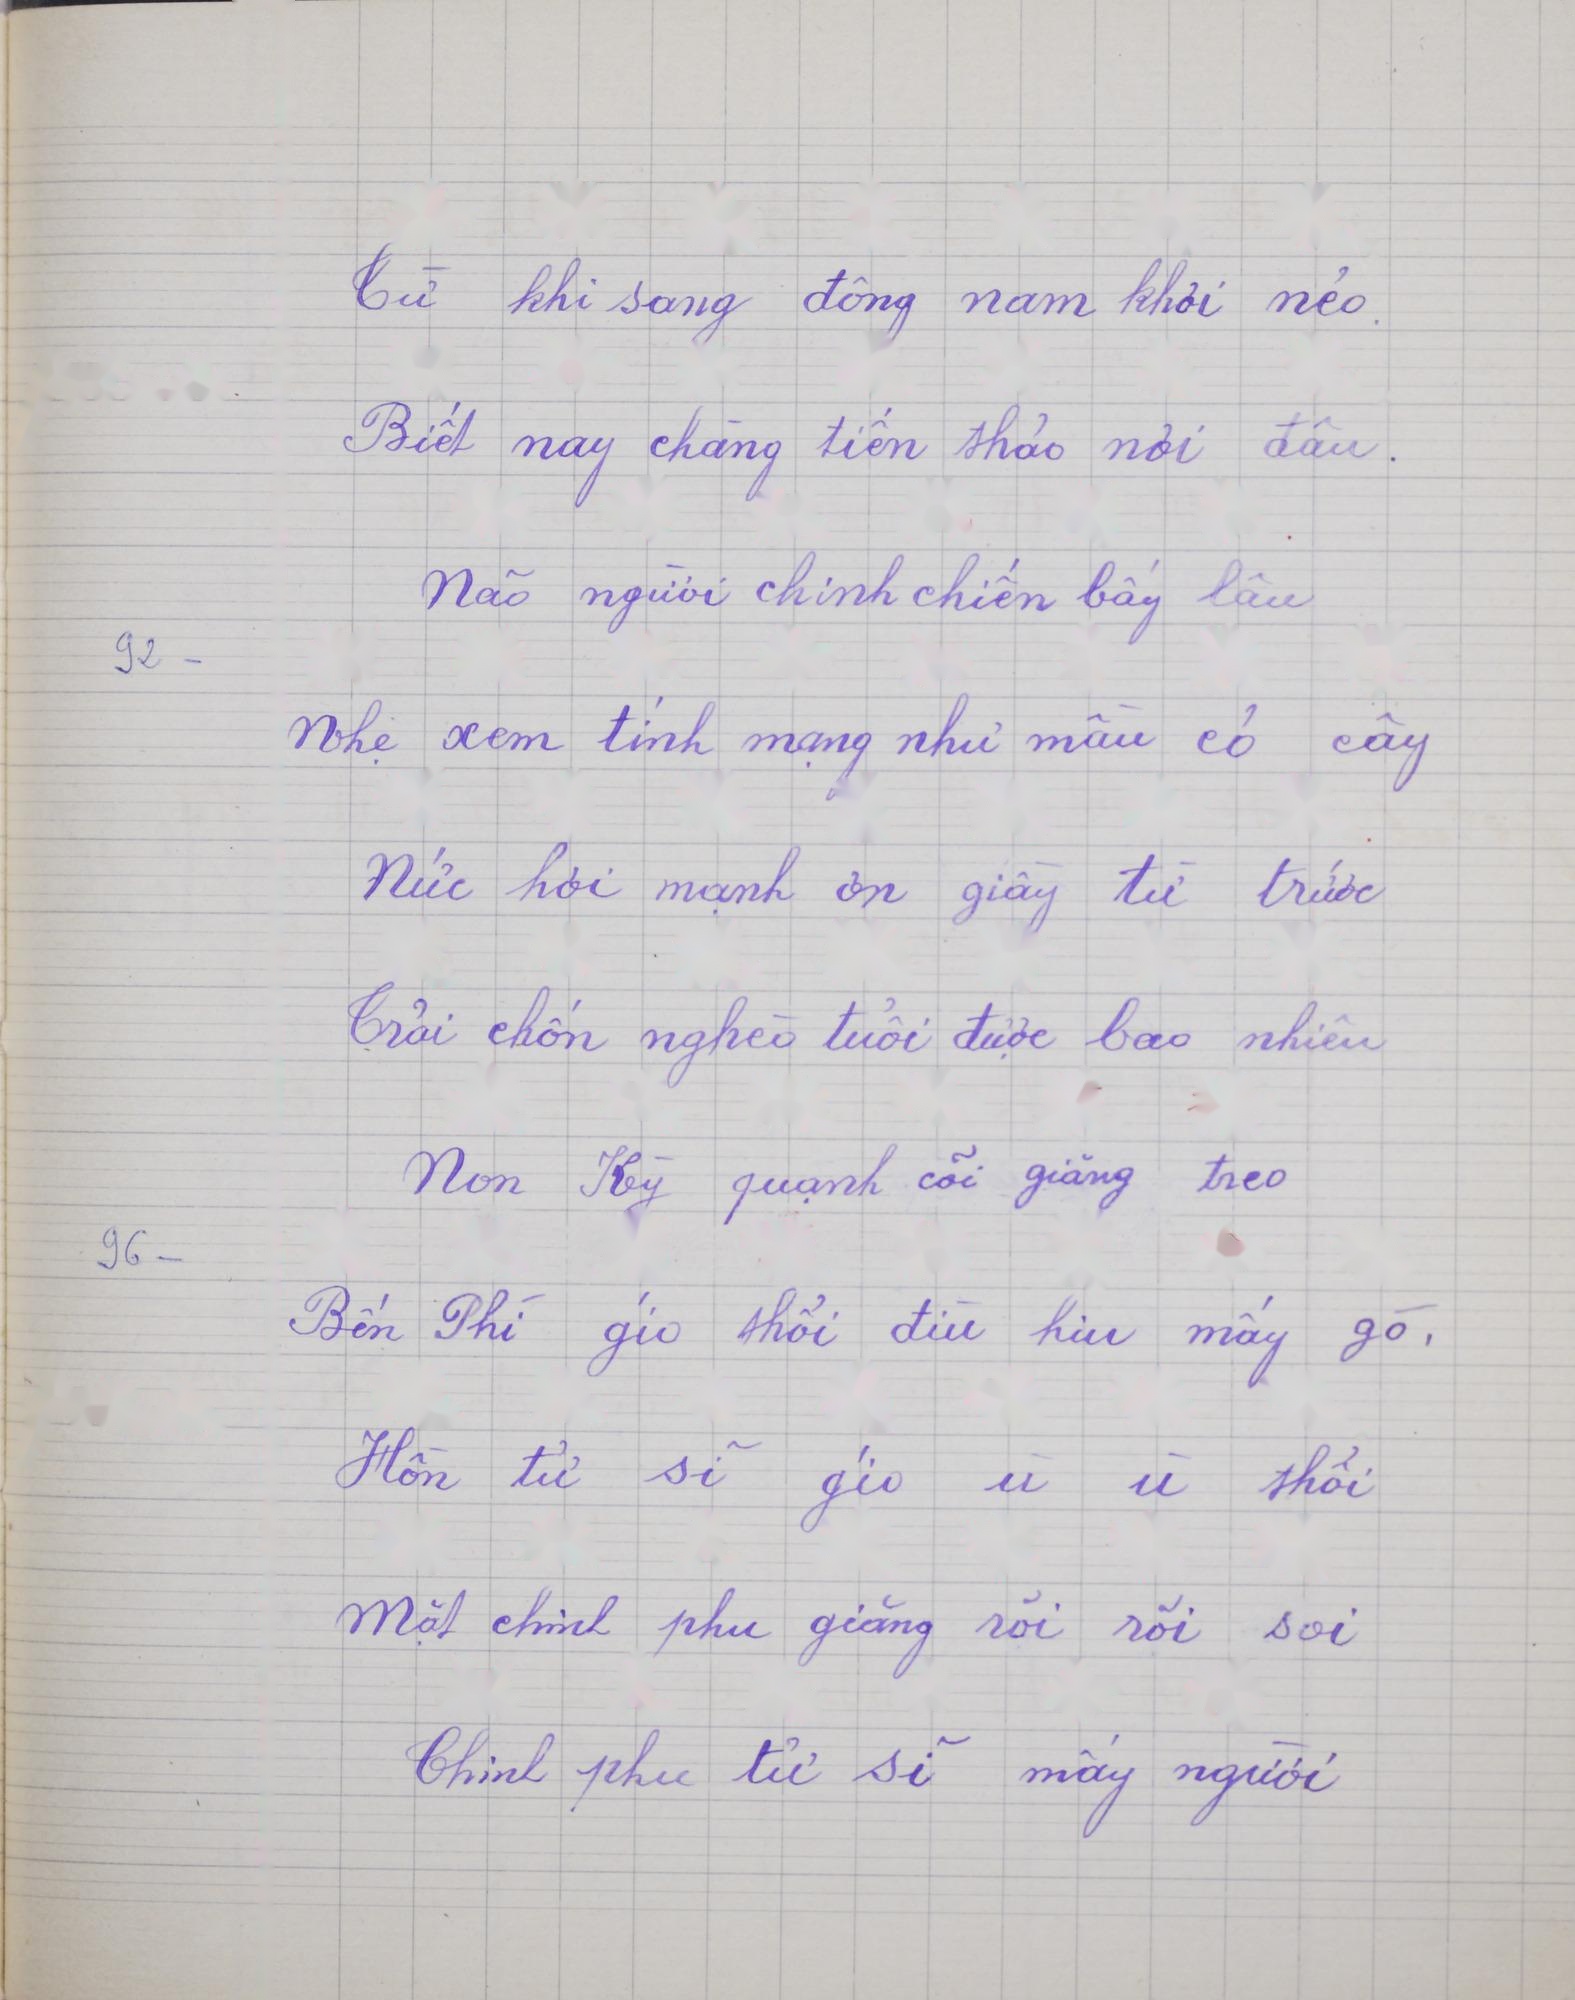 Từ khi sang đông nam khơi nẻo.
Biết nay chàng tiến thảo nơi đâu.
Nào người chinh chiến bấy lâu
92 -
Nhẹ xem tính mạng như mầu cỏ cây
Nức hơi mạnh ơn giầy từ trước
Trải chốn nghèo tuổi được bao nhiêu
Non Kỳ quạnh cõi giăng treo
96 -
Bến Phì gío thổi đìu hiu mấy gò.
Hồn tử sĩ gío ù ù thổi
Mặt chinh phu giăng rõi rõi soi
Chinh phu tử sĩ mấy người